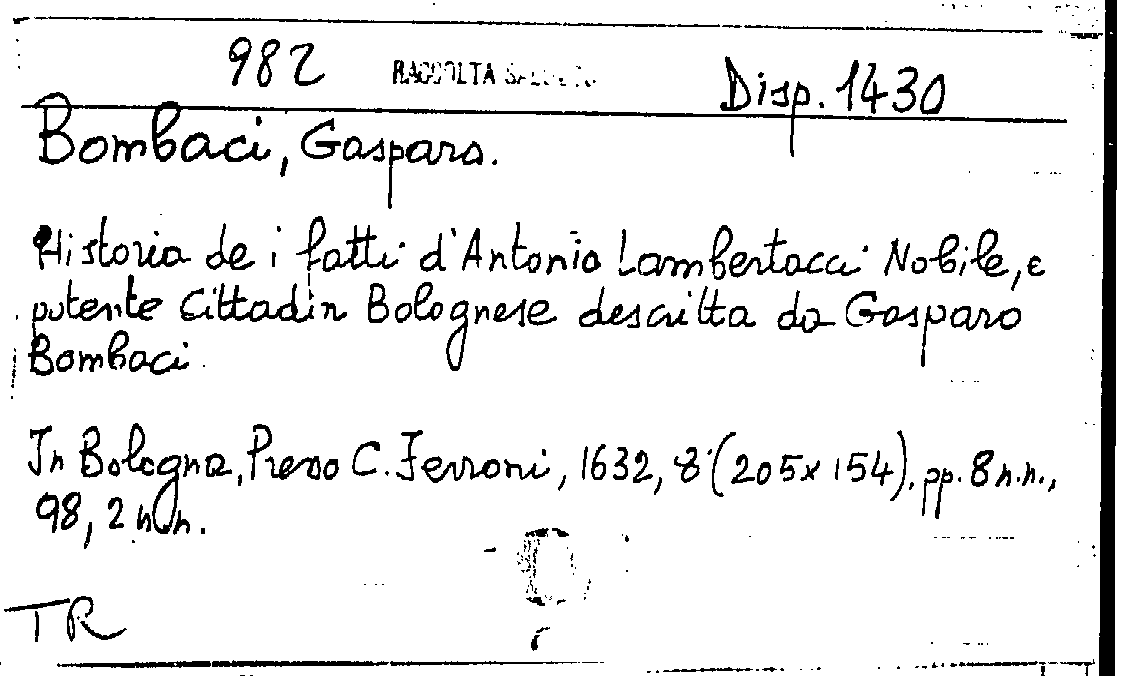 982 RACCOLTA Disp. 1430
Bombaci, Gasparo.
Historia de i fatti d'Antonio Lambertacci Nobile, e
potente Cittadin Bolognese descritta da Gasparo
Bombaci
In Bologna, Presso C. Ferroni, 1632, 8° (205x154). pp. 8 n.n.,
98, 2 n.n.
TR